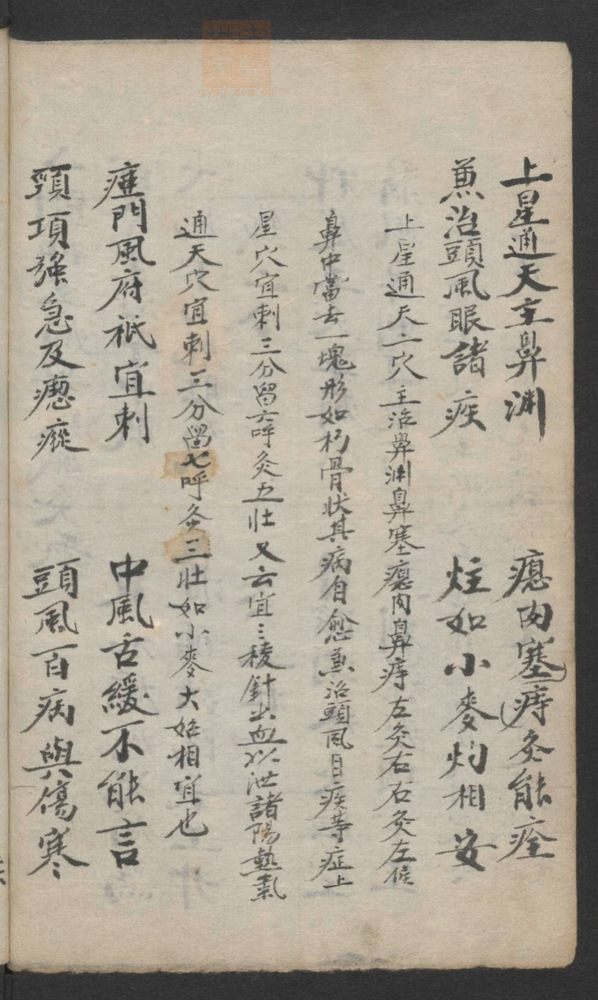 上星通天主鼻渊　瘜肉塞痔灸能痊
兼治頭風眼諸疾　炷如小麥灼相安
上星通天二穴主治鼻渊鼻塞瘜肉鼻痔左灸右右灸左候
鼻中當去一塊形如朽骨狀其病自愈兼治頭風目疾等症上
星穴宜刺三分留六呼灸五壯又云宜三稜針出血以泄諸陽熱氣
通天穴宜刺三分留七呼灸三壯如小麥大始相宜也
瘂門風府祇宜刺　中風舌緩不能言
頸項強急及瘛瘲　頭風百病與傷寒